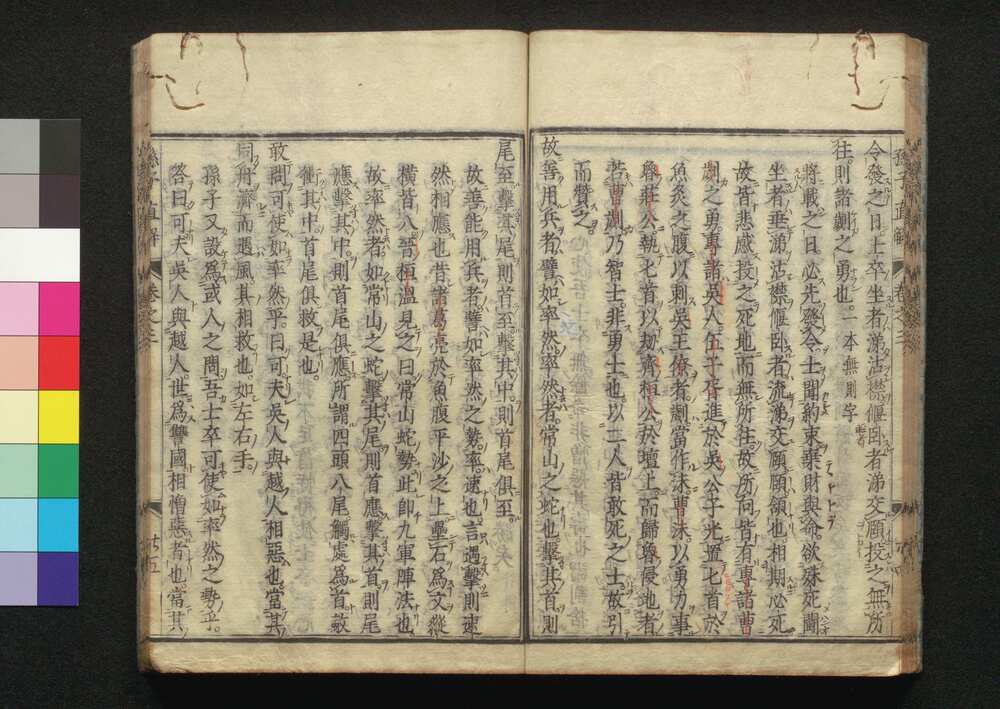 令發之日士卒坐者涕沾襟偃臥者涕交頤投之無所
往則諸劌之勇也一本無則字
將戰之日必先發令士聞約束棄財與命欲殊死鬪
坐者垂涕沾襟偃臥者流涕交頤頤頷也相期必死
故皆悲感投之死地而無所往故所向皆有專諸曹
劌之勇專諸吳人伍子胥進於吳公子光置匕首於
魚炙之腹以刺吳王僚者劌當作沫曹沫以勇力事
魯莊公執匕首以劫齊桓公於壇上而歸魯侵地者
若曹劌乃智士非勇士也以二人皆敢死之士故引
而贊之
故善用兵者譬如率然率然者常山之蛇也擊其首則
尾至擊其尾則首至擊其中則首尾俱至
故善能用兵者譬如率然之勢率速也言遇擊則速
然相應也昔諸葛亮於魚腹平沙之上壘石爲文縱
橫皆八晉桓溫見之曰常山蛇勢此即九軍陣法也
故率然者如常山之蛇擊其尾則首應擊其首則尾
應擊其中則首尾俱應所謂四頭八尾觸處爲首敵
衝其中首尾俱救是也
敢問可使如率然乎曰可夫吳人與越人相惡也當其
同舟濟而遇風其相救也如左右手
孫子又設爲或人之問吾士卒可使如率然之勢乎
答曰可夫吳人與越人世爲讐國相憎惡者也當其
孫子直解 卷之三
廿五